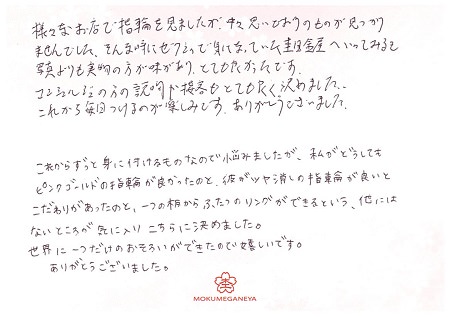 様々なお店で指輪を見ましたが、中々思いどおりのものが見つかり
ませんでした。そんな時にゼクシィで気になっていた杢目金屋へいってみると
写真よりも実物の方が味があり、とてもよかったです。
コンシェルジュの方の説明や接客もとても良く、決めました。
これから毎日つけるのが楽しみです。ありがとうございました。
これからずっと身に付けるものなので悩みましたが、私がどうしても
ピンクゴールドの指輪が良かったのと、彼がツヤ消しの指輪が良いと
こだわりがあったのと、一つの柄からふたつのリングができるという、他には
ないところが気に入りこちらに決めました。
世界に一つだけのおそろいができたので嬉しいです。
ありがとうございました。
MOKUMEGANEYA